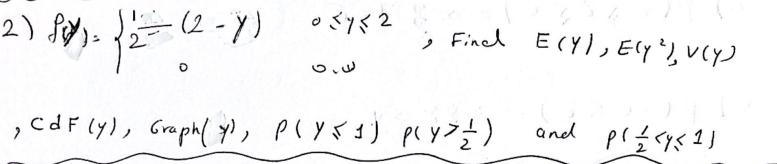 2) f(y) = { 1/2 (2 - y)   0 ≤ y ≤ 2   , Find E(y), E(y²), V(y)
0   o.w
, CdF(y), Graph(y), P(y ≤ 1) P(y > 1/2) and P(1/2 < y ≤ 1)